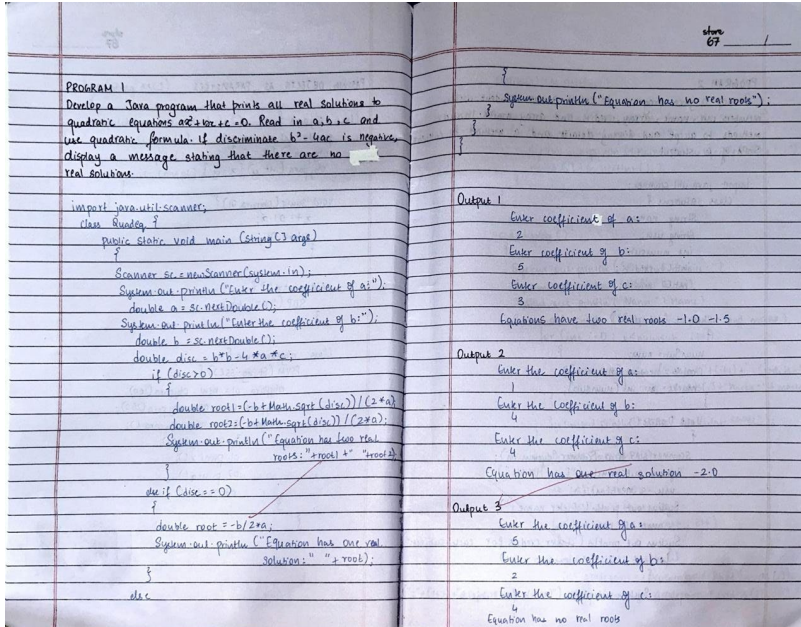 PROGRAM 1
Develop a Java program that prints all real solutions to
quadratic equations ax²+bx+c=0. Read in a,b,c and
use quadratic formula. If discriminate b²-4ac is negative,
display a message stating that there are no
real solutions.
import java.util.scanner;
class Quadeq {
public static void main (string [] args)
{
Scanner sc = newScanner(system.in);
System.out.println ("Enter the coefficient of a:");
double a = sc.nextDouble();
System.out.println ("Enter the coefficient of b:");
double b = sc.nextDouble();
double disc = b*b-4*a*c;
if (disc>0)
{
double root1=(-b+Math.sqrt(disc))/(2*a);
double root2=(-b+Math.sqrt(disc))/(2*a);
System.out.println("Equation has two real
roots:"+root1+" "+root2)
}
else if (disc==0)
{
double root =-b/2*a;
System.out.println ("Equation has one real
solution:" "+root);
}
else
store
67
{
System.out.println ("Equation has no real roots");
}
}
}
Output 1
Enter coefficient of a:
2
Enter coefficient of b:
5
Enter coefficient of c:
3
Equations have two real roots -1.0 -1.5
Output 2
Enter the coefficient of a:
1
Enter the Coefficient of b:
4
Enter the coefficient of c:
4
Equation has one real solution -2.0
Output 3
Enter the coefficient of a:
5
Enter the coefficient of b:
2
Enter the coefficient of c:
4
Equation has no real roots